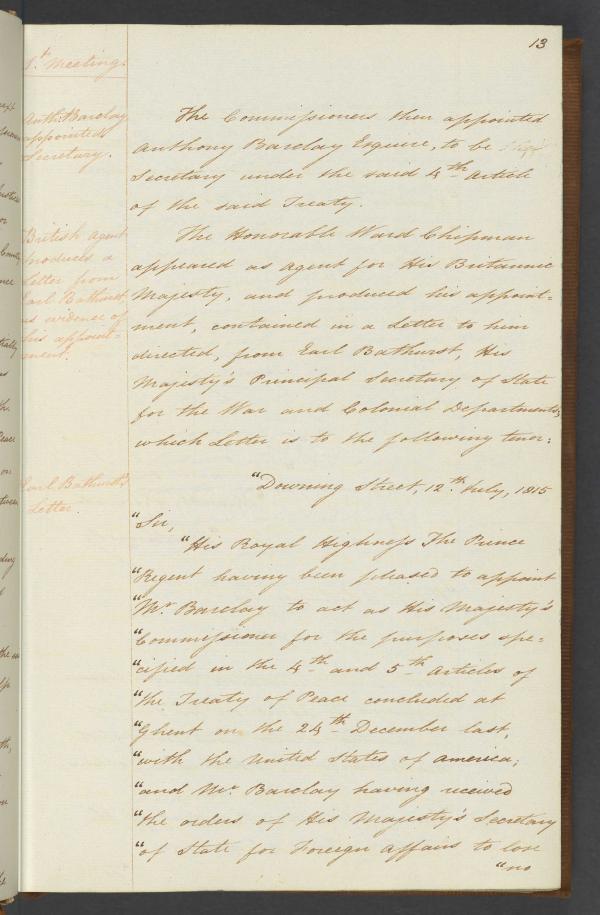 13
1st. Meeting.
Anth: Barclay
appointed
Secretary.
The Commissioners then appointed
Anthony Barclay Esquire, to be
Secretary under the said 4th. Article
of the said Treaty.
British agent
produces a
Letter from
Earl Bathurst,
as evidence of
his appoint=
ment.
The Honorable Ward Chipman
appeared as agent for His Britannic
Majesty, and produced his appoint=
ment, contained in a Letter to him
directed, from Earl Bathurst, His
Majesty's Principal Secretary of State
for the War and Colonial Departments;
which Letter is to the following tenor:
Earl Bathurst's
Letter.
"Downing Street, 12th. July, 1815
"Sir,
"His Royal Highness The Prince
"Regent having been pleased to appoint
"Mr. Barclay to act as His Majesty's
"Commissioner for the purposes spe=
"cified in the 4th. and 5th. Articles of
"the Treaty of Peace concluded at
"Ghent on the 24th. December last,
"with the United States of America;
"and Mr. Barclay having received
"the orders of His Majesty's Secretary
"of State for Foreign affairs to lose
"no